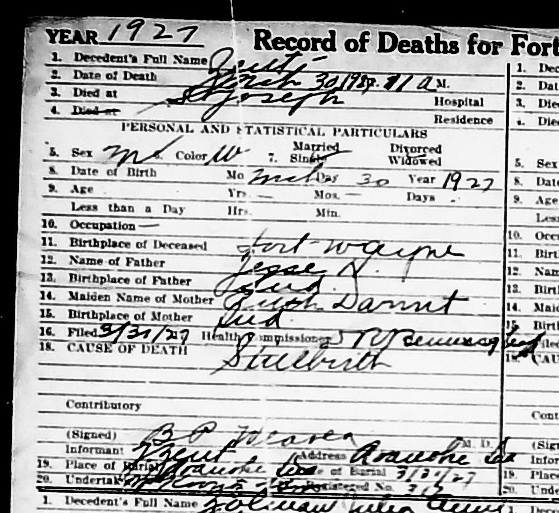 YEAR 1927 Record of Deaths for Fort
1. Decedent's Full Name
2. Date of Death March 30, 1927 11 A M.
3. Died at St Joseph Hospital
4. Died at Residence
PERSONAL AND STATISTICAL PARTICULARS
5. Sex M 6. Color W 7. Married Single Divorced Widowed
8. Date of Birth Mo Mch Day 30 Year 1927
9. Age Yrs. — Mos. — Days -
Less than a Day Hrs. Min.
10. Occupation —
11. Birthplace of Deceased Fort Wayne
12. Name of Father Jesse N.
13. Birthplace of Father Ind.
14. Maiden Name of Mother Ruth
15. Birthplace of Mother Ind.
16. Filed 3/31/27 Health Commissioner
18. CAUSE OF DEATH Stillbirth
Contributory
(Signed) B P Weaver M. D.
Informant Address Roanoke Ind
19. Place of Burial Roanoke Ind Date of Burial 3/31/27
20. Undertaker Registered No.
1. Decedent's Full Name
1. Dec
2. Dat
3. Die
4. Die
5. Sex
8. Dat
9. Age
Les
10. Occ
11. Birt
12. Nam
13. Birt
14. Mai
15. Birt
CAU
Cont
(Sig
Info
19. Place
20. Und
1. De